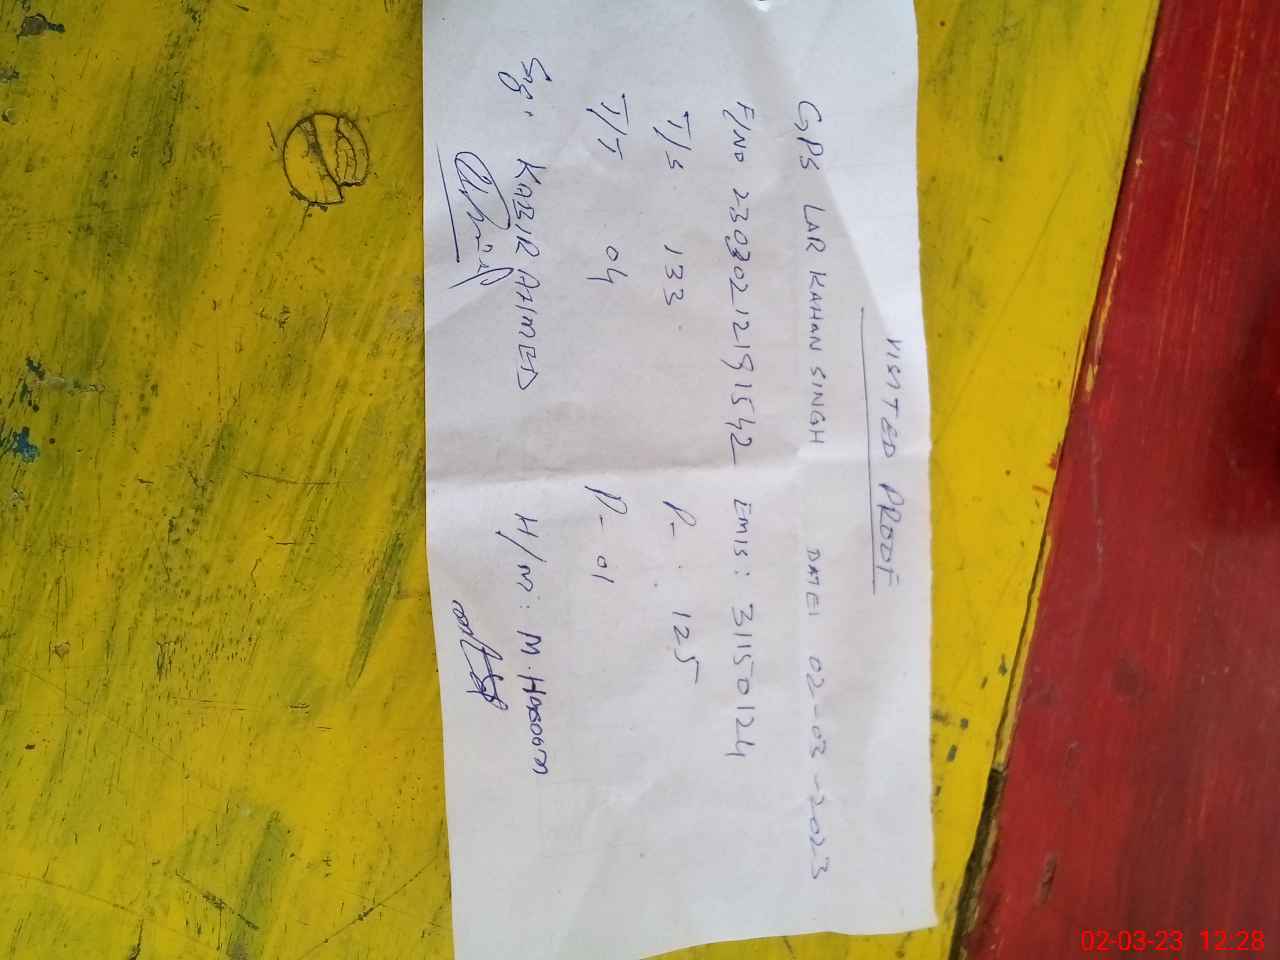 VISITED PROOF
GPS LAR KAHAN SINGH DATE: 02-03-2023
F/NO 23030212191542 EMIS: 31150124
T/S 133 P- 125
T/T 04 P- 01
Sig: KABIR AHMED H/M: M. Hasoom
02-03-23 12:28